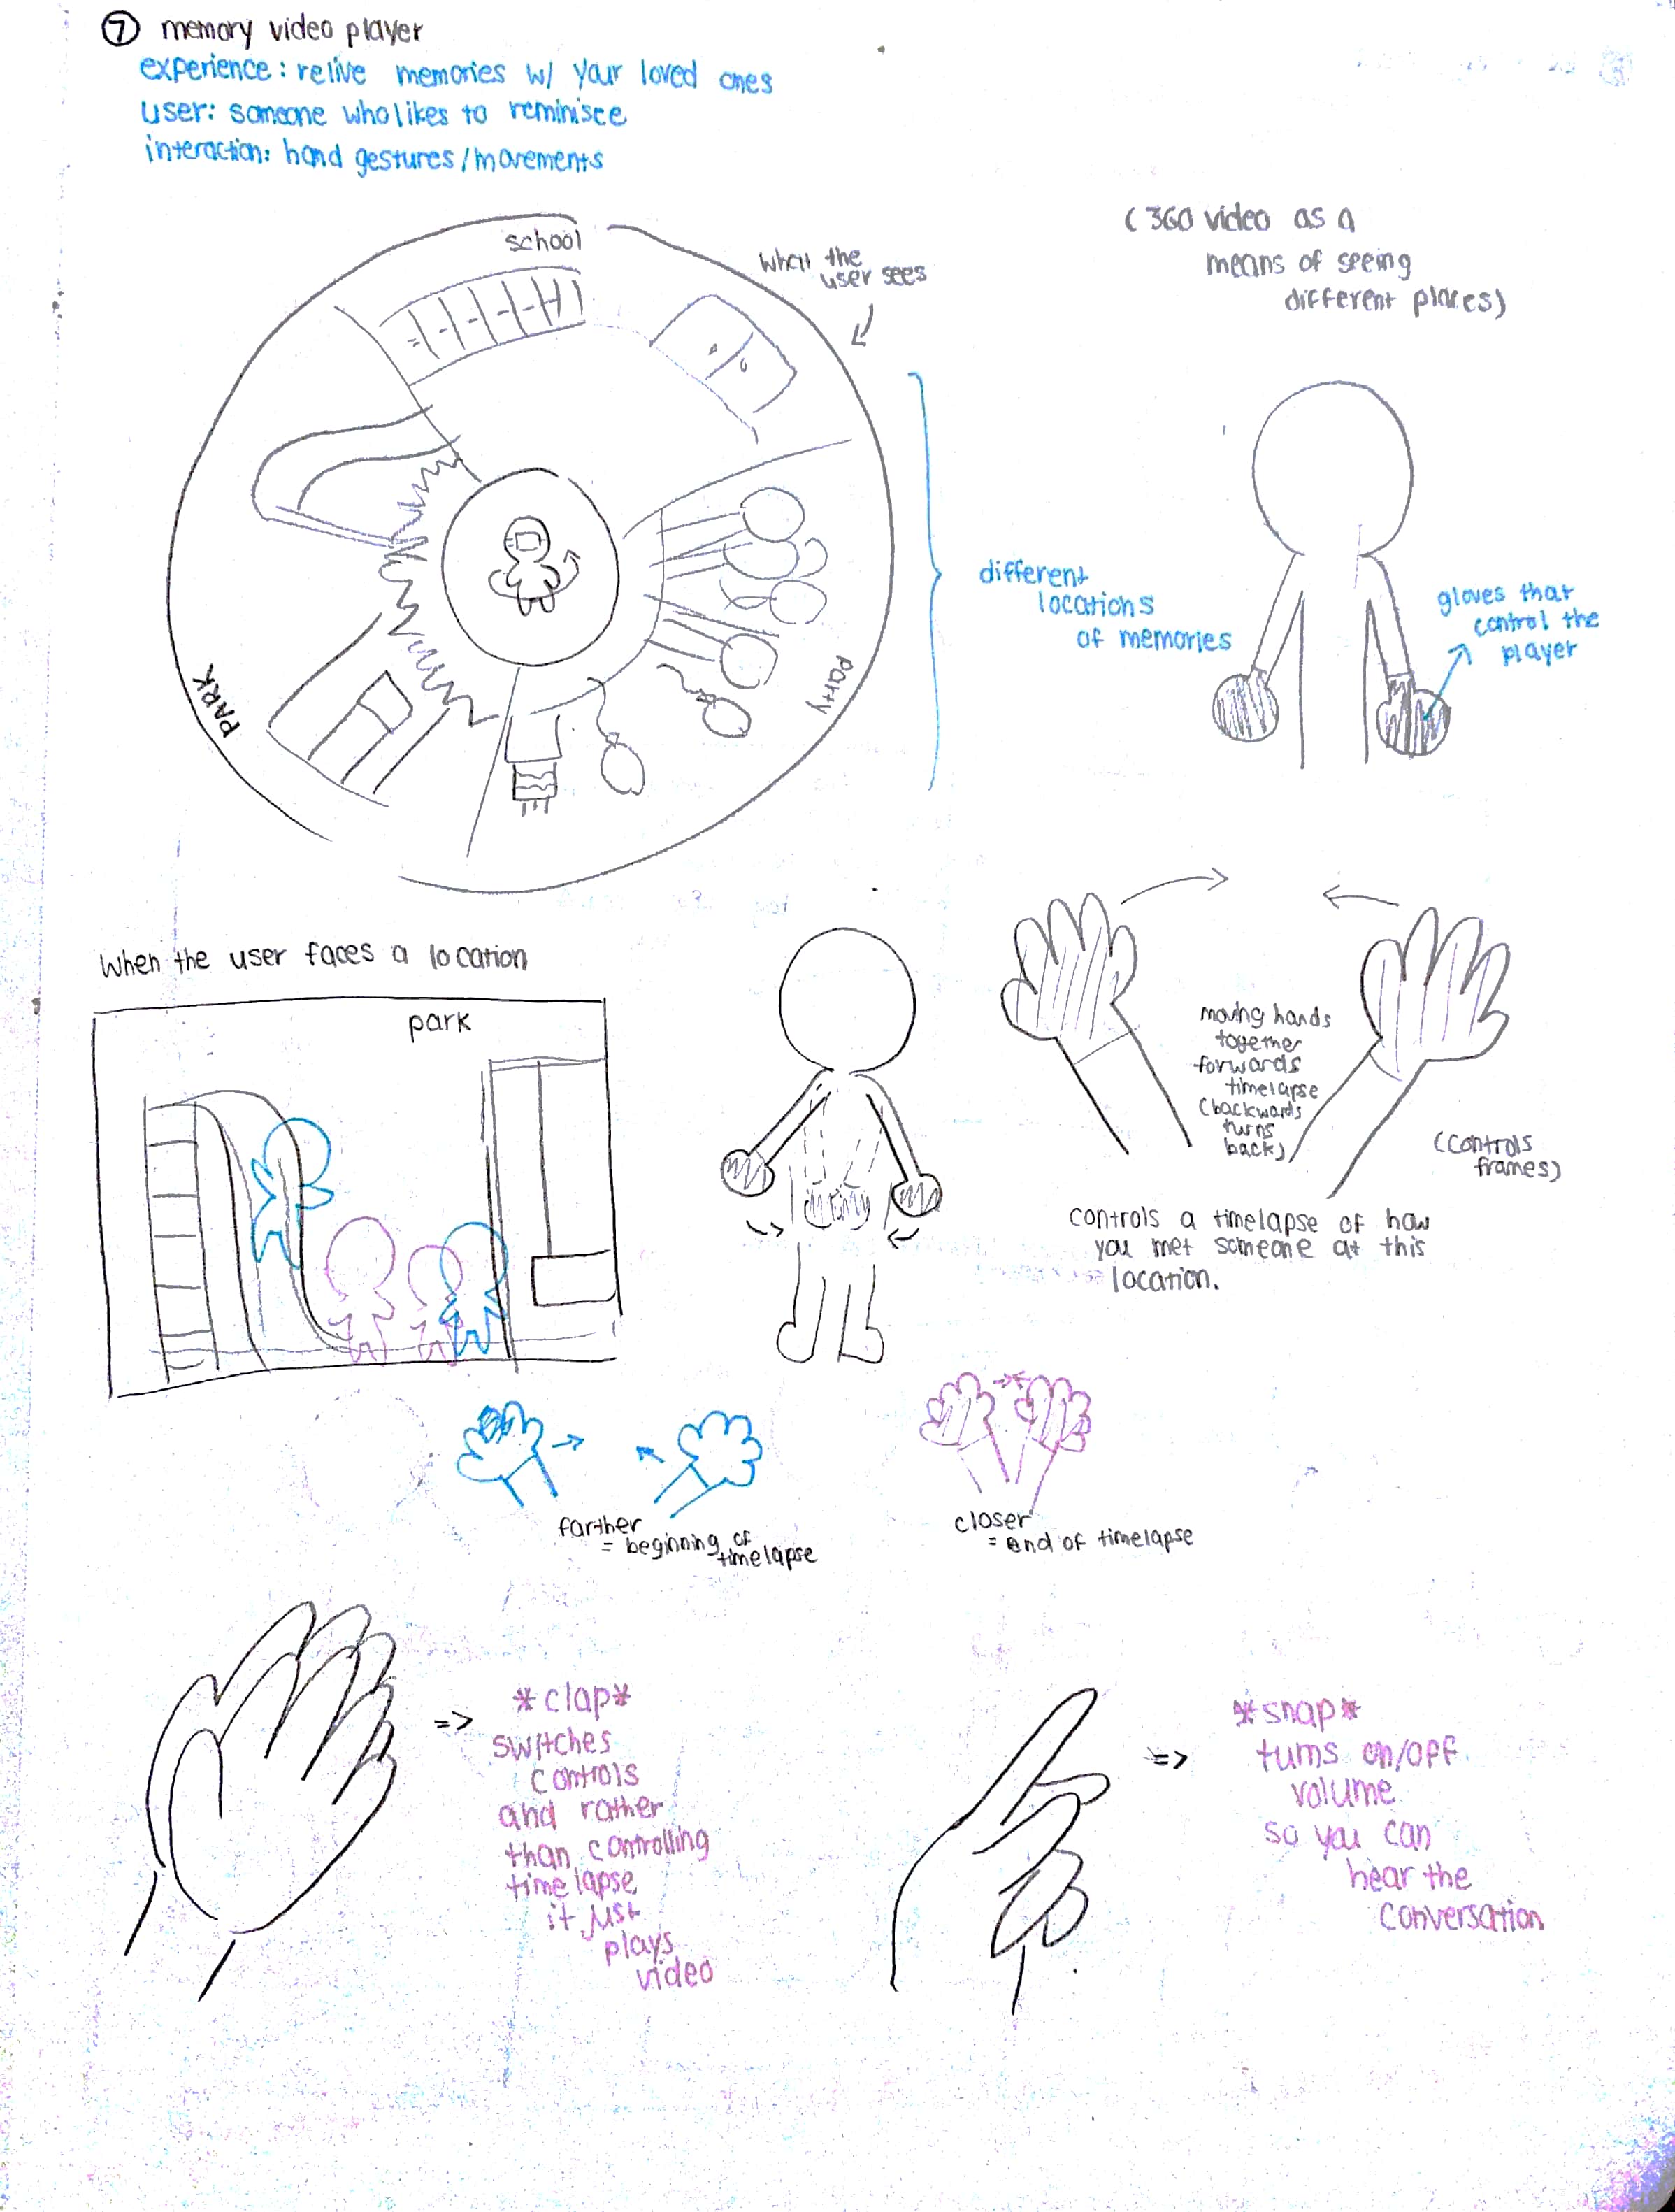 ⑦ memory video player
experience: relive memories w/ your loved ones
user: someone who likes to reminisce
interaction: hand gestures/movements
school
what the
user sees
(360 video as a
means of seeing
different places)
different
locations
of memories
gloves that
control the
player
PARK
party
When the user faces a location
park
moving hands
together
forwards
timelapse
(backwards
turns
back)
(controls
frames)
controls a timelapse of how
you met someone at this
location.
farther
= beginning of
timelapse
closer
= end of timelapse
=> *clap*
switches
controls
and rather
than controlling
timelapse
it just
plays
video
=> *snap*
turns on/off
volume
so you can
hear the
conversation